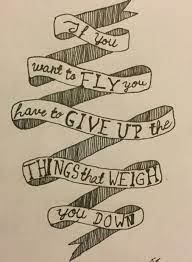 If you
want to FLY you
have to GIVE UP the
THINGS that WEIGH
you DOWN